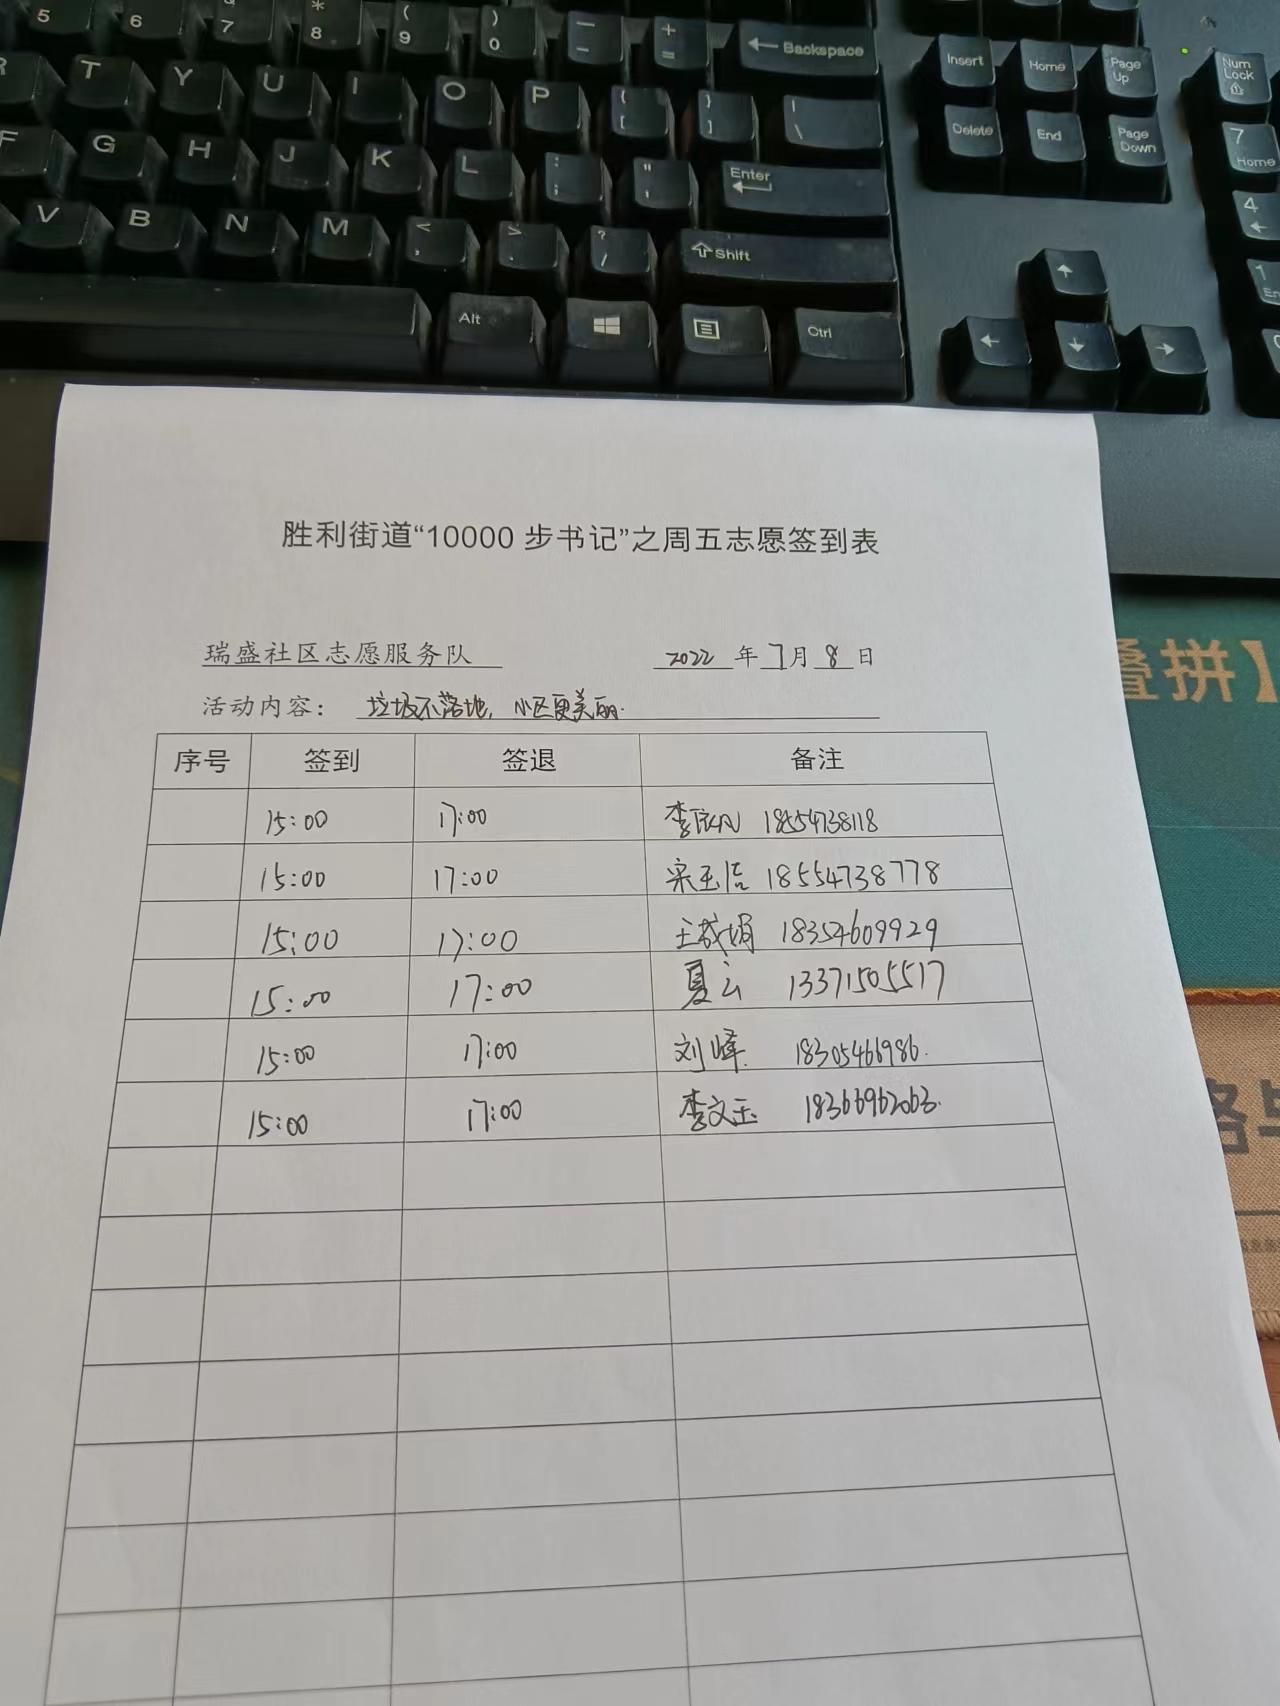 5 6 7 * 8 ( 9 ) 0 — - + = ← Backspace Insert Home Page Up Num Lock
R T Y U I O P { [ } ] | \ Delete End Page Down 7 Home
F G H J K L : ; " ' Enter 4 ←
V B N M < , > . ? / Shift ↑ 1
Alt Ctrl ← ↓ →
胜利街道“10000 步书记”之周五志愿签到表
瑞盛社区志愿服务队 2022 年 7 月 8 日
叠拼】
活动内容： 垃圾不落地, 小区更美丽.
序号 签到 签退 备注
15:00 17:00 李 18554738118
15:00 17:00 宋玉洁 18554738778
15:00 17:00 王 娟 18354609929
15:00 17:00 夏云 13371505517
15:00 17:00 刘峰. 18305466986.
15:00 17:00 李文玉 18366962063.